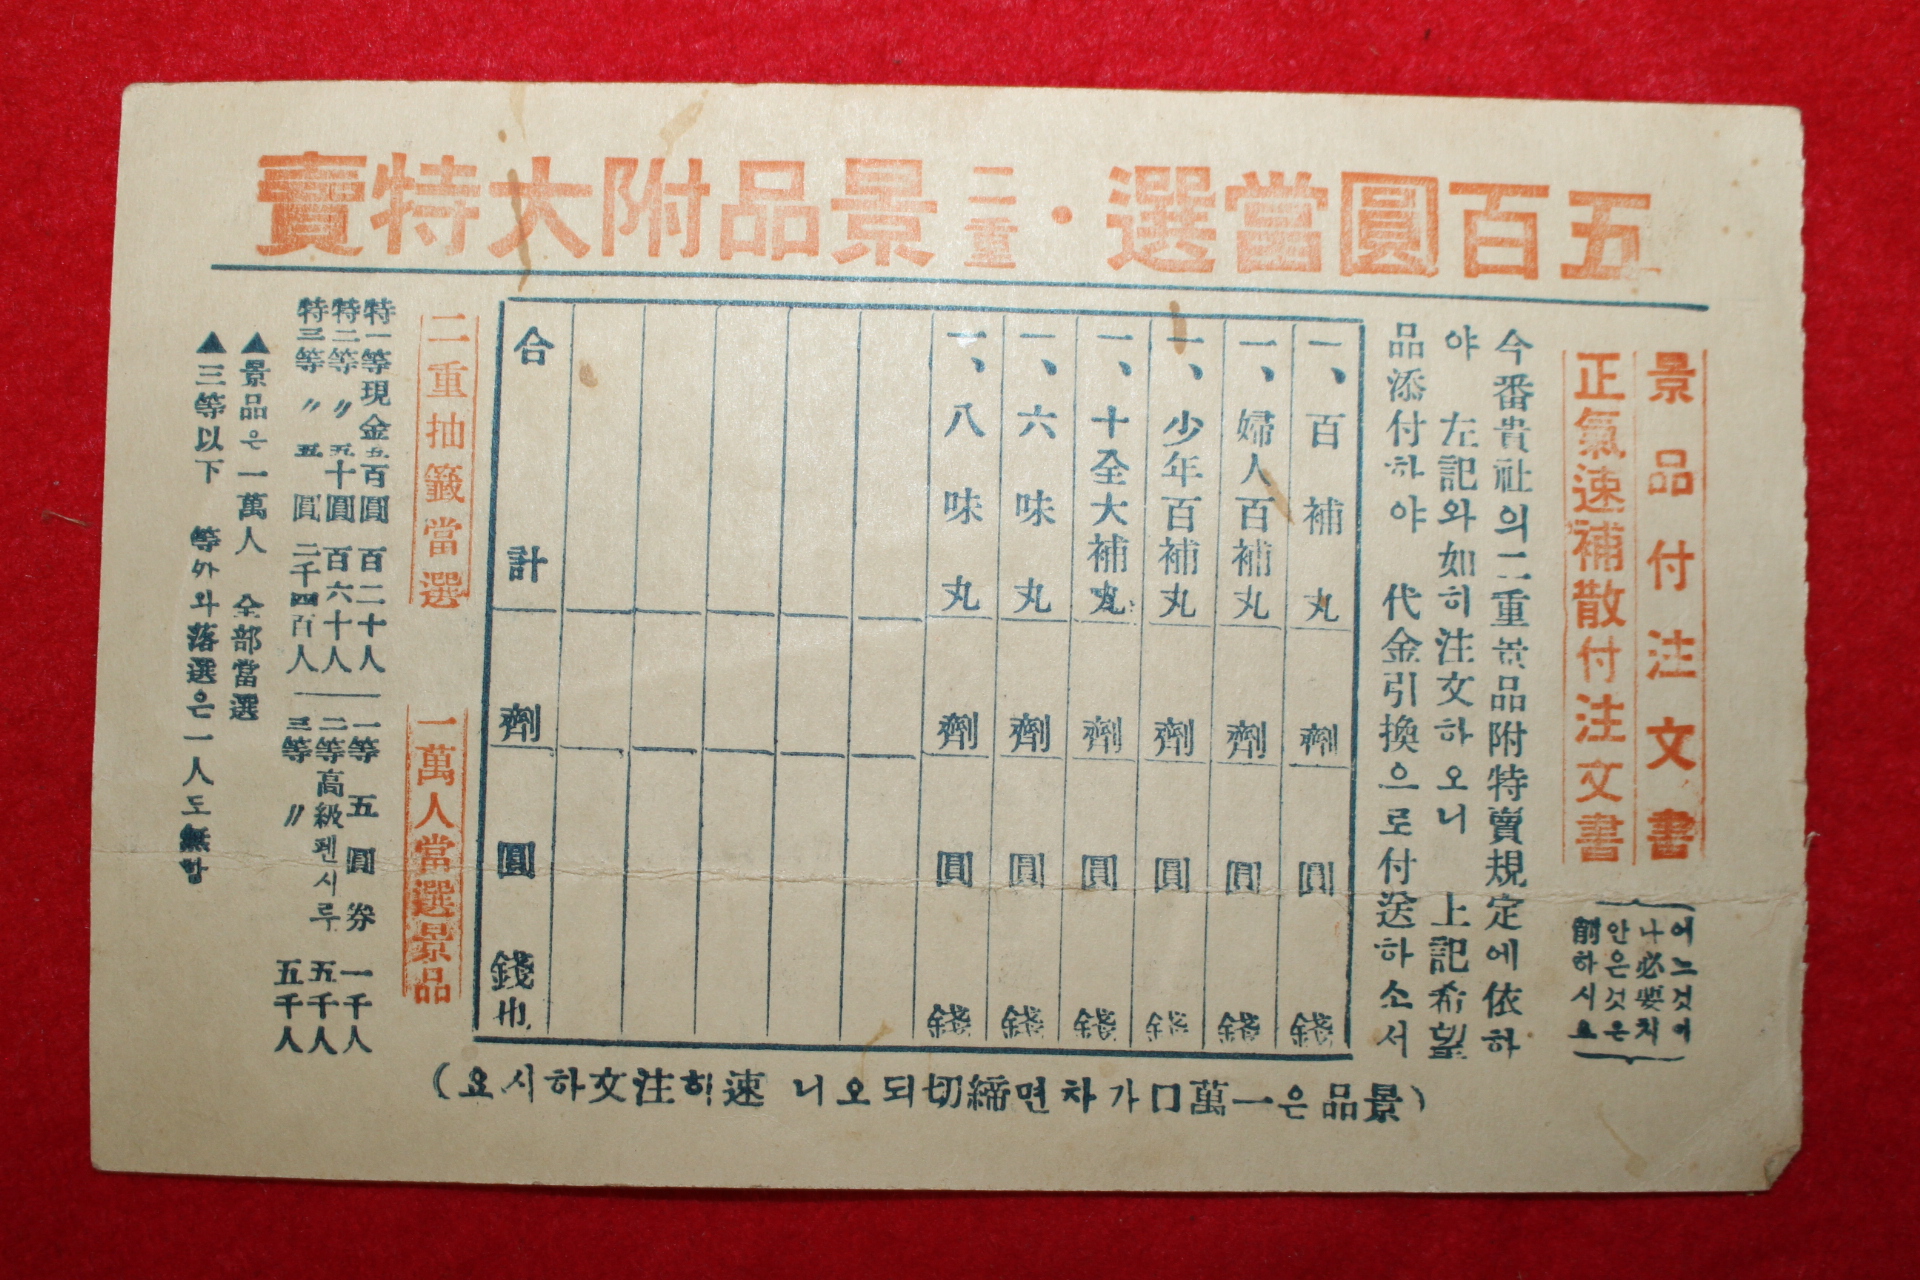 五百圓當選・二重景品附大特賣
景品付注文書
正氣速補散付注文書
어느것이
나必要치
안은것은
削하시요
今番貴社의二重景品附特賣規定에依하
야 左記와如히注文하오니 上記希望
品添付하야 代金引換으로付送하소서
一、百補丸 劑 圓 錢
一、婦人百補丸 劑 圓 錢
一、少年百補丸 劑 圓 錢
一、十全大補丸 劑 圓 錢
一、六味丸 劑 圓 錢
一、八味丸 劑 圓 錢
合計 劑 圓 錢也
(景品은一萬口가차면締切되오니 速히注文하시요)
二重抽籤當選
特一等現金五百圓 百二十人
特二等〃五十圓 百六十人
特三等〃五圓 二千四百人
一萬人當選景品
一等 五圓券 一千人
二等高級펜시루 五千人
三等 〃 五千人
▲景品은一萬人 全部當選
▲三等以下 等外와落選은一人도無함